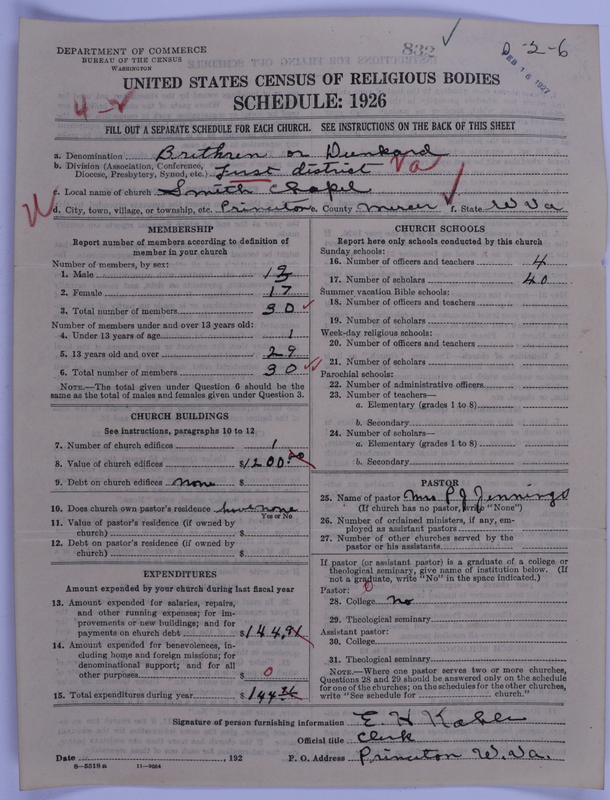 832
D-2-6
FEB 16 1927
DEPARTMENT OF COMMERCE
BUREAU OF THE CENSUS
WASHINGTON
UNITED STATES CENSUS OF RELIGIOUS BODIES
SCHEDULE: 1926
FILL OUT A SEPARATE SCHEDULE FOR EACH CHURCH. SEE INSTRUCTIONS ON THE BACK OF THIS SHEET
a. Denomination Brethren or Dunkard
b. Division (Association, Conference, Diocese, Presbytery, Synod, etc.) First district Va
c. Local name of church Smith Chapel
d. City, town, village, or township, etc. Princeton e. County Mercer f. State W Va
MEMBERSHIP
Report number of members according to definition of
member in your church
Number of members, by sex:
1. Male 13
2. Female 17
3. Total number of members 30
Number of members under and over 13 years old:
4. Under 13 years of age 1
5. 13 years old and over 29
6. Total number of members 30
NOTE.—The total given under Question 6 should be the
same as the total of males and females given under Question 3.
CHURCH BUILDINGS
See instructions, paragraphs 10 to 12
7. Number of church edifices 1
8. Value of church edifices $1200.00
9. Debt on church edifices none
10. Does church own pastor's residence have none
Yes or No
11. Value of pastor's residence (if owned by
church) $
12. Debt on pastor's residence (if owned by
church) $
EXPENDITURES
Amount expended by your church during last fiscal year
13. Amount expended for salaries, repairs,
and other running expenses; for im-
provements or new buildings; and for
payments on church debt $144.
14. Amount expended for benevolences, in-
cluding home and foreign missions; for
denominational support; and for all
other purposes $ 0
15. Total expenditures during year $144
CHURCH SCHOOLS
Report here only schools conducted by this church
Sunday schools:
16. Number of officers and teachers 4
17. Number of scholars 40
Summer vacation Bible schools:
18. Number of officers and teachers
19. Number of scholars
Week-day religious schools:
20. Number of officers and teachers
21. Number of scholars
Parochial schools:
22. Number of administrative officers
23. Number of teachers—
a. Elementary (grades 1 to 8)
b. Secondary
24. Number of scholars—
a. Elementary (grades 1 to 8)
b. Secondary
PASTOR
25. Name of pastor Mrs P J Jennings
(If church has no pastor, write "None")
26. Number of ordained ministers, if any, em-
ployed as assistant pastors
27. Number of other churches served by the
pastor or his assistants
If pastor (or assistant pastor) is a graduate of a college or
theological seminary, give name of institution below. (If
not a graduate, write "No" in the space indicated.)
Pastor: 0
28. College No
29. Theological seminary
Assistant pastor:
30. College
31. Theological seminary
NOTE.—Where one pastor serves two or more churches,
Questions 28 and 29 should be answered only on the schedule
for one of the churches; on the schedules for the other churches,
write "See schedule for church."
Signature of person furnishing information E. H. Kahle
Official title Clerk
Date , 192 P. O. Address Princeton W. Va.
8—5518a 11—9064